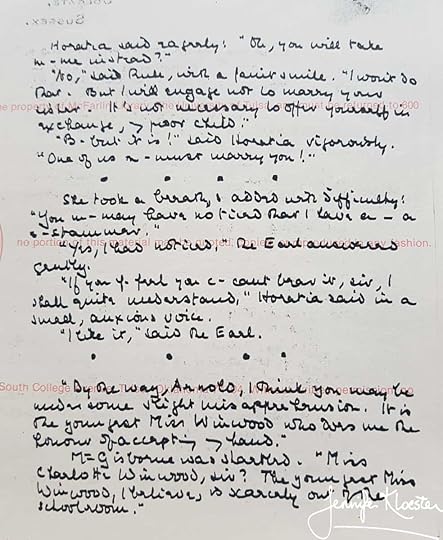 SUSSEX.
Horatia said eagerly: "Oh, you will take
m-me instead?"
"No," said Rule, with a faint smile. "I won't do
that. But I will engage not to marry your
sister. It's not necessary to offer yourself in
exchange, my poor child."
"B-but it is!" said Horatia vigorously.
"One of us m-must marry you!"
She took a breath, & added with difficulty:
"You m-may have noticed that I have a – a
s-stammer."
no portion of this material may be quoted, copied or reproduced in any fashion.
"Yes, I had noticed," the Earl answered
gently.
"If you f-feel you c-can't bear it, sir, I
shall quite understand," Horatia said in a
small, anxious voice.
"I like it," said the Earl.
South College
"By the way, Arnold, I think you may be
under some slight misapprehension. It is
the youngest Miss Winwood who does me the
honour of accepting my hand."
Mr Gisborne was startled. "Miss
Charlotte Winwood, sir? The youngest Miss
Winwood, I believe, is scarcely out of the
schoolroom."
Jennifer Kloester